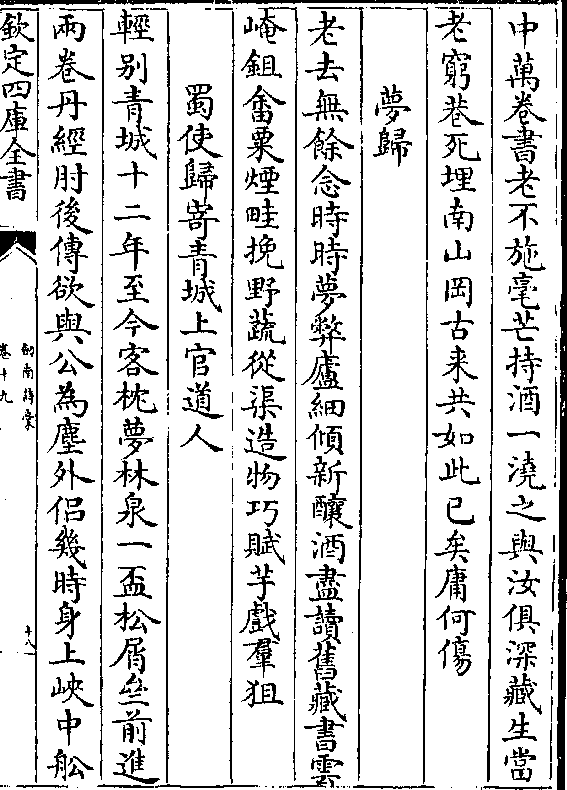 中萬卷書老不施毫芒持酒一澆之與汝俱深藏生當
老窮巷死埋南山岡古来共如此已矣庸何傷
夢歸
老去無餘念時時夢弊廬細傾新釀酒盡讀舊藏書雲
崦鉏畬粟煙畦挽野蔬從渠造物巧賦芋戲羣狙
蜀使歸寄青城上官道人
輕别青城十二年至今客枕夢林泉一盃松屑㘴前進
兩卷丹經肘後傳欲與公為塵外侣幾時身上峽中舩
欽定四庫全書
劍南詩稾
卷十九
十八